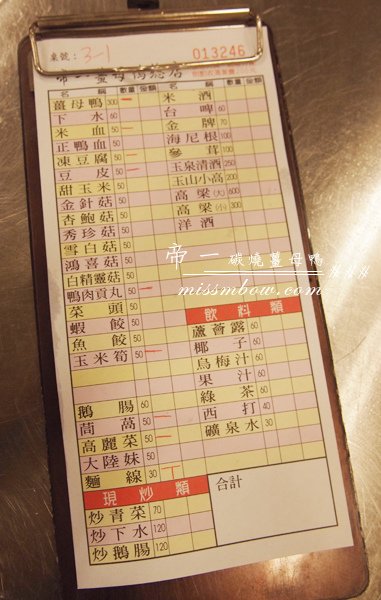 桌號: 3-1 013246
帝一薑母鴨總店
名稱 數量 金額 名稱 數量 金額
薑母鴨 300 一 米酒
下水 60 台啤 60
米血 50 一 金牌 70
正鴨血 50 海尼根 100
凍豆腐 50 一 參茸 100
豆皮 50 一 玉泉清酒 250
甜玉米 50 玉山小高 200
金針菇 50 高梁(大) 600
杏鮑菇 50 高梁(小) 300
秀珍菇 50 洋酒
雪白菇 50
鴻喜菇 50
白精靈菇 50
鴨肉貢丸 50 一
菜頭 50
蝦餃 50 飲料類
魚餃 50 蘆薈露 60
玉米筍 50 一 椰子 60
烏梅汁 60
果汁 60
鵝腸 60 綠茶 60
茼萵 50 一 西打 40
高麗菜 50 一 礦泉水 30
大陸妹 50
麵線 30 丅 合計
現炒類
炒青菜 70
炒下水 120
炒鵝腸 120
帝一碳燒薑母鴨
missmbow.com